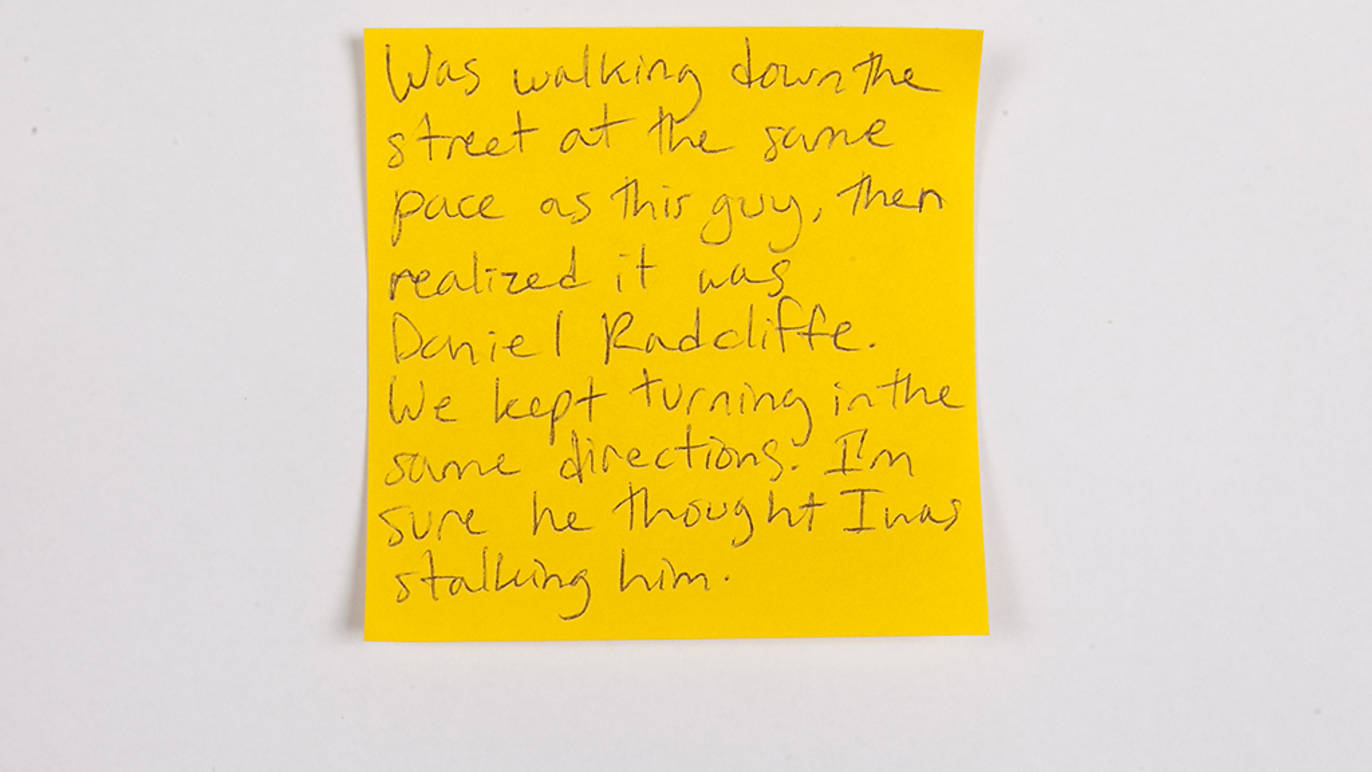 Was walking down the
street at the same
pace as this guy, then
realized it was
Daniel Radcliffe.
We kept turning in the
same directions. I'm
sure he thought I was
stalking him.